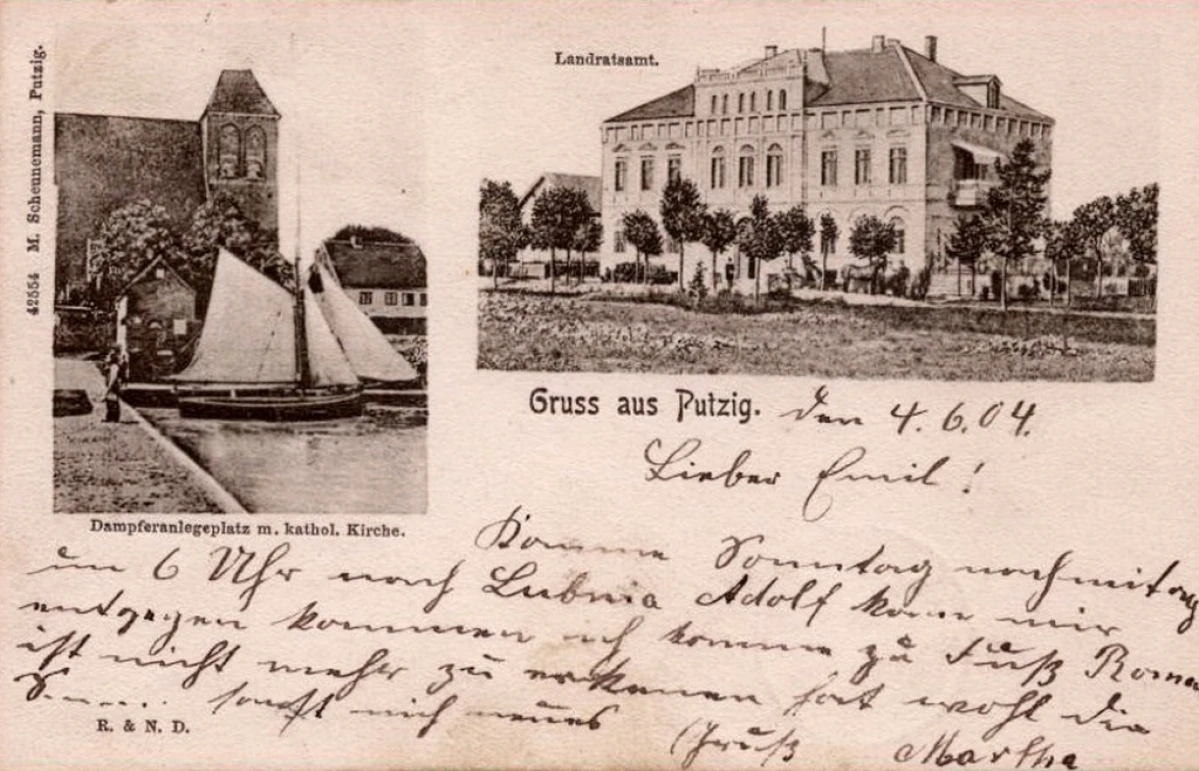 42554 M. Scheunemann, Putzig.
Landratsamt.
Dampferanlegeplatz m. kathol. Kirche.
Gruss aus Putzig. den 4.6.04.
Lieber Emil!
Komme Sonntag nachmitag
um 6 Uhr nach Lubnia Adolf kann mir
entgegen kommen ich komme zu Fuß Roman
ist nicht mehr zu erkenen hat wohl die
sonst nich neues
Gruß Martha
R. & N. D.